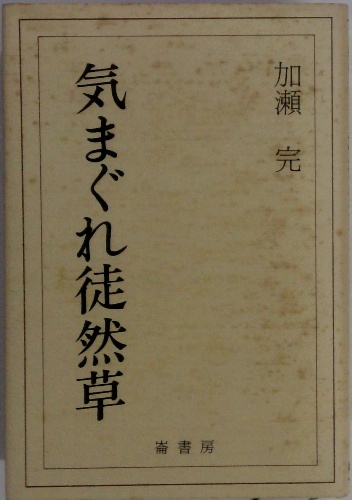 加瀬 完
気まぐれ徒然草
崙書房